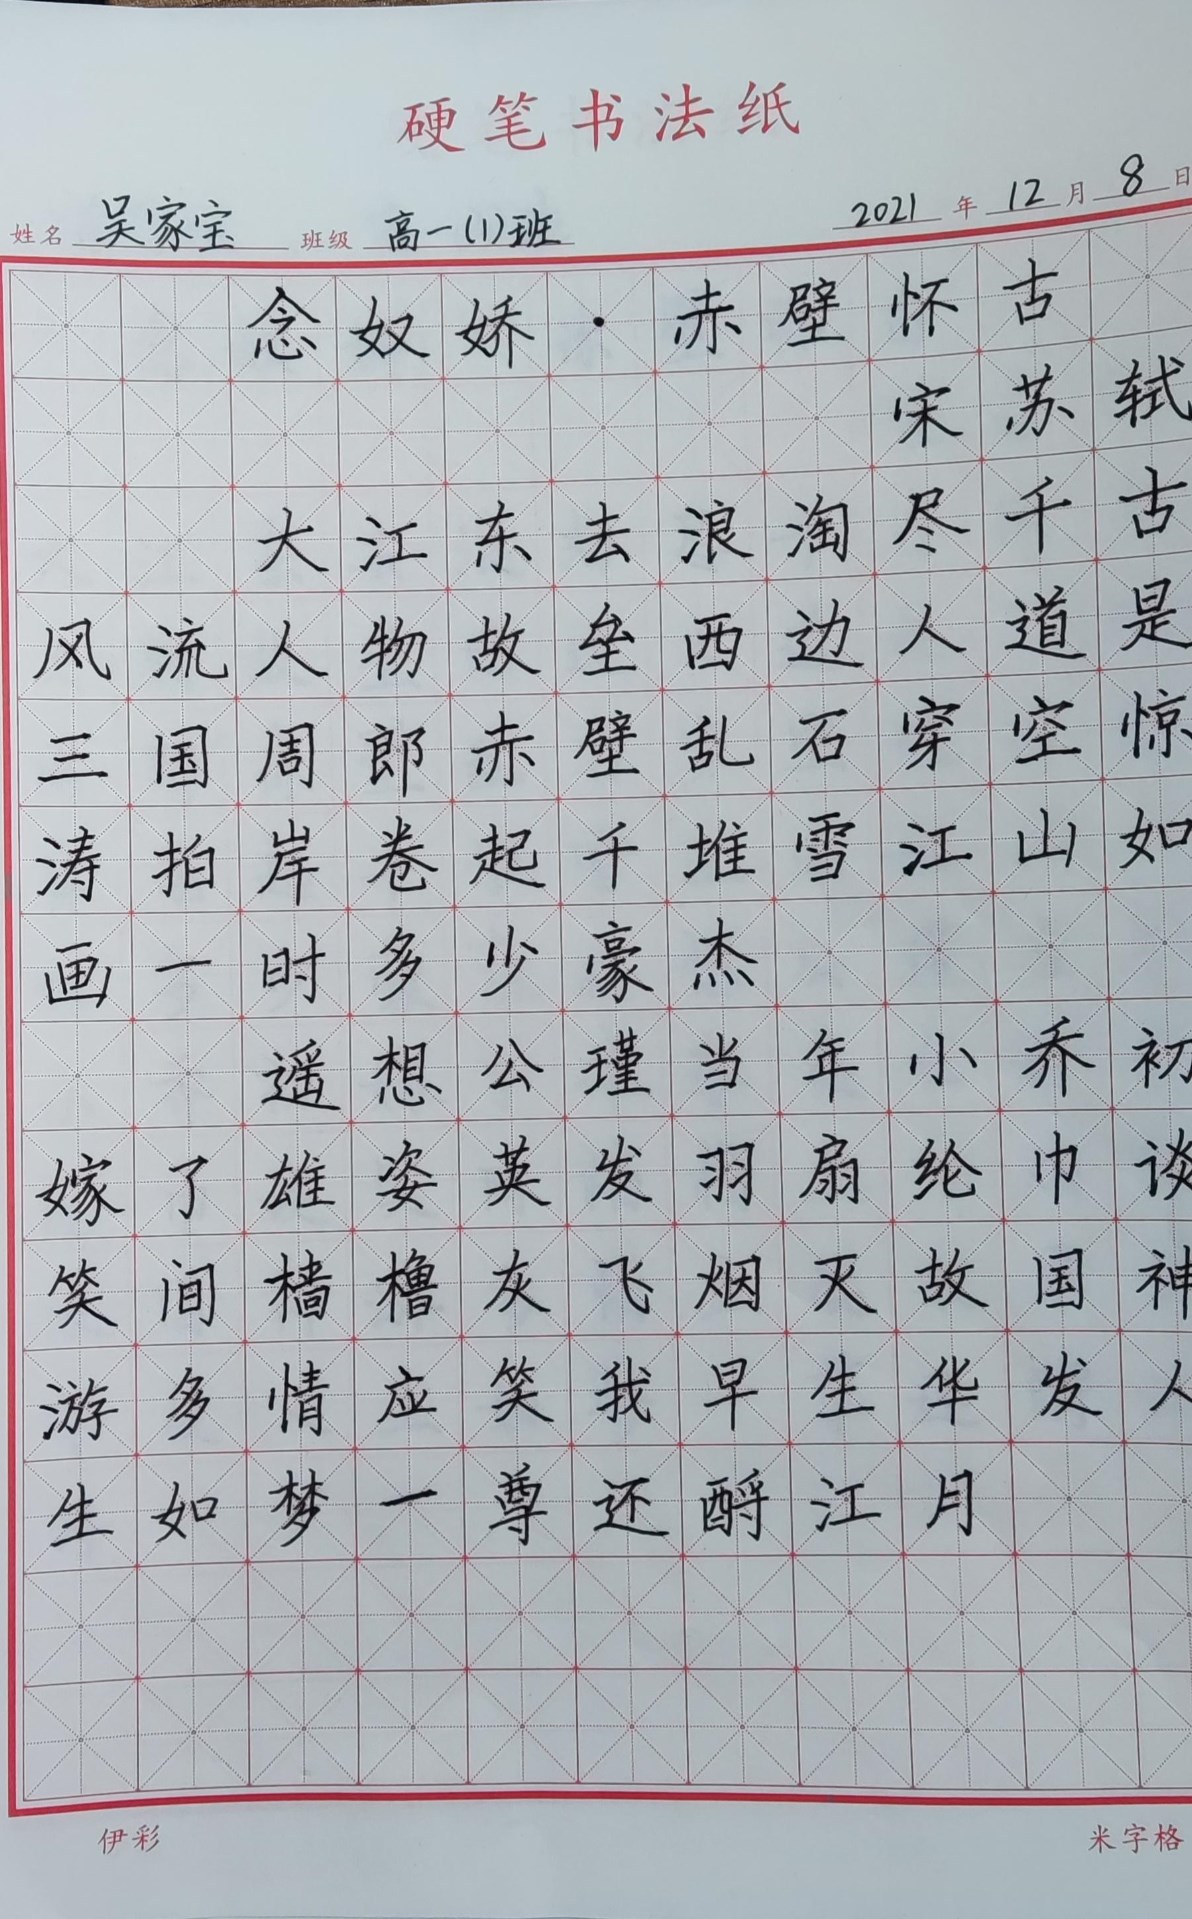 硬笔书法纸
姓名 吴家宝 班级 高一(1)班 2021 年 12 月 8 日
念奴娇·赤壁怀古
宋苏轼
大江东去浪淘尽千古
风流人物故垒西边人道是
三国周郎赤壁乱石穿空惊
涛拍岸卷起千堆雪江山如
画一时多少豪杰
遥想公瑾当年小乔初
嫁了雄姿英发羽扇纶巾谈
笑间樯橹灰飞烟灭故国神
游多情应笑我早生华发人
生如梦一尊还酹江月
伊彩 米字格